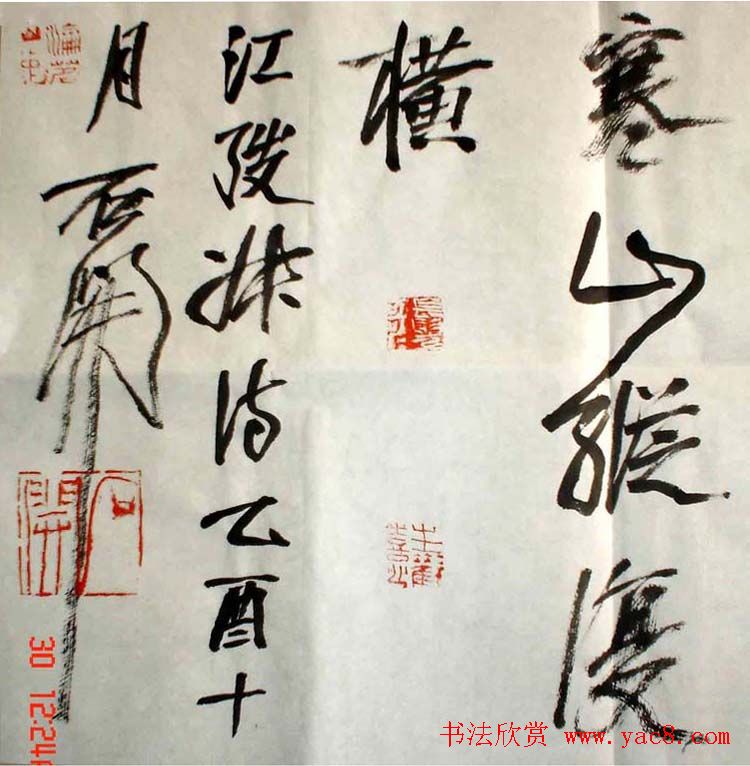 寒山縱復
橫
江陵诗乙酉十
月石開
石開
30 12:24
书法欣赏 www.yac8.com